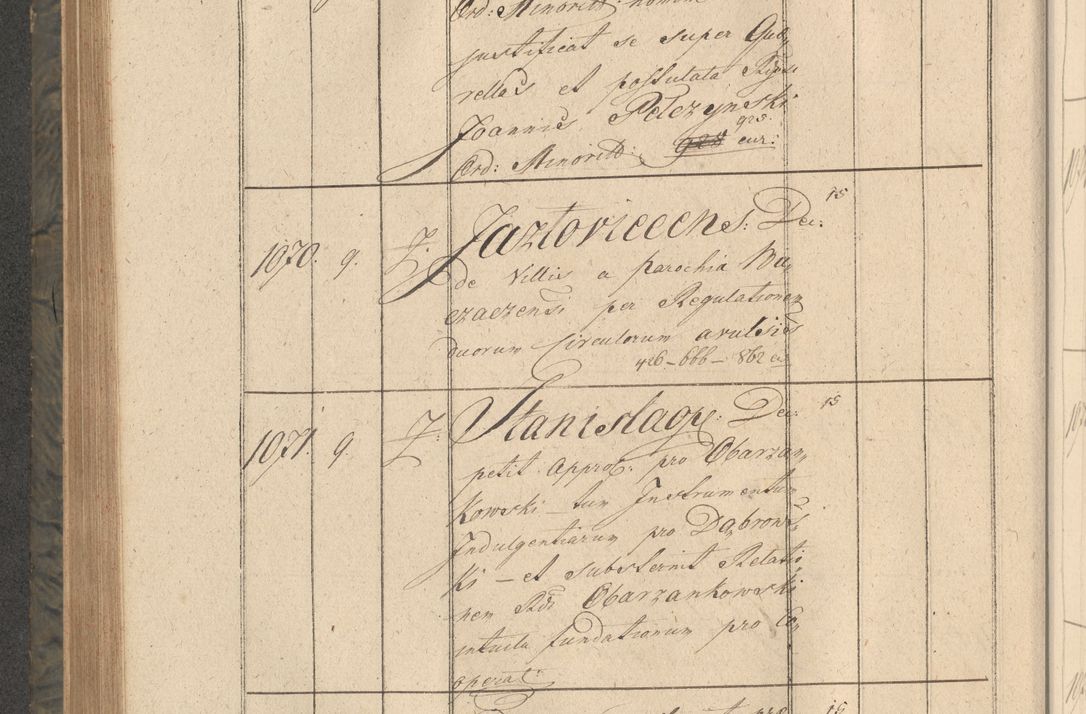 Ord: Minoritt: nomine
justificat se super Que,
rellas et postulata Rdssi
Joannis Pelczynski
925.
Ord: Minoritt: 928 cur:
1070. 9. J. Jazlovicecens: Dec: 15
de Villis a parochia Bu,
czaczensi per Regulationem
duorum Circulorum avulsis
426-666-862 c
1071. 9. J: Stanislaop: Dec: 15
petit Approb: pro Obarzan,
kowski - tum Instrumentum
Indulgentiarum pro Dąbrows,
ki - et substernit Relatio
nem Rdi Obarzankowski
intuitu fundationum pro Co,
operat:
15